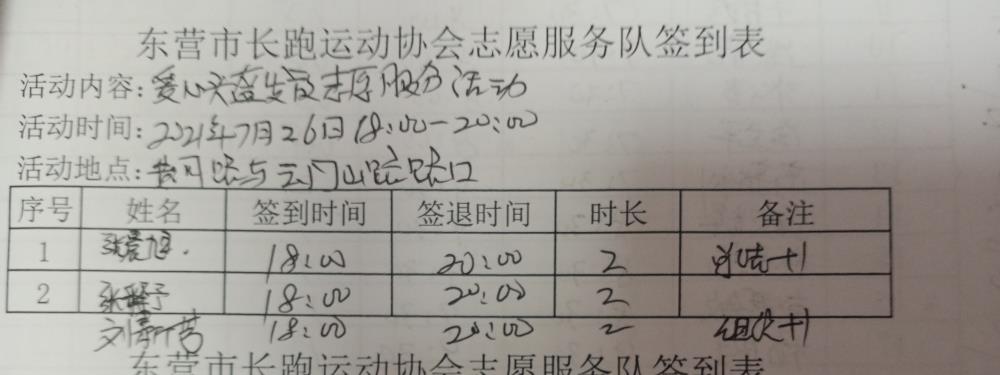 东营市长跑运动协会志愿服务队签到表
活动内容：爱心义卖志愿服务活动
活动时间：2021年7月26日18:00-20:00
活动地点：黄河路与云门山路路口
序号 姓名 签到时间 签退时间 时长 备注
1 18:00 20:00 2 总结+1
2 18:00 20:00 2
18:00 20:00 2 组织+1
东营市长跑运动协会志愿服务队签到表